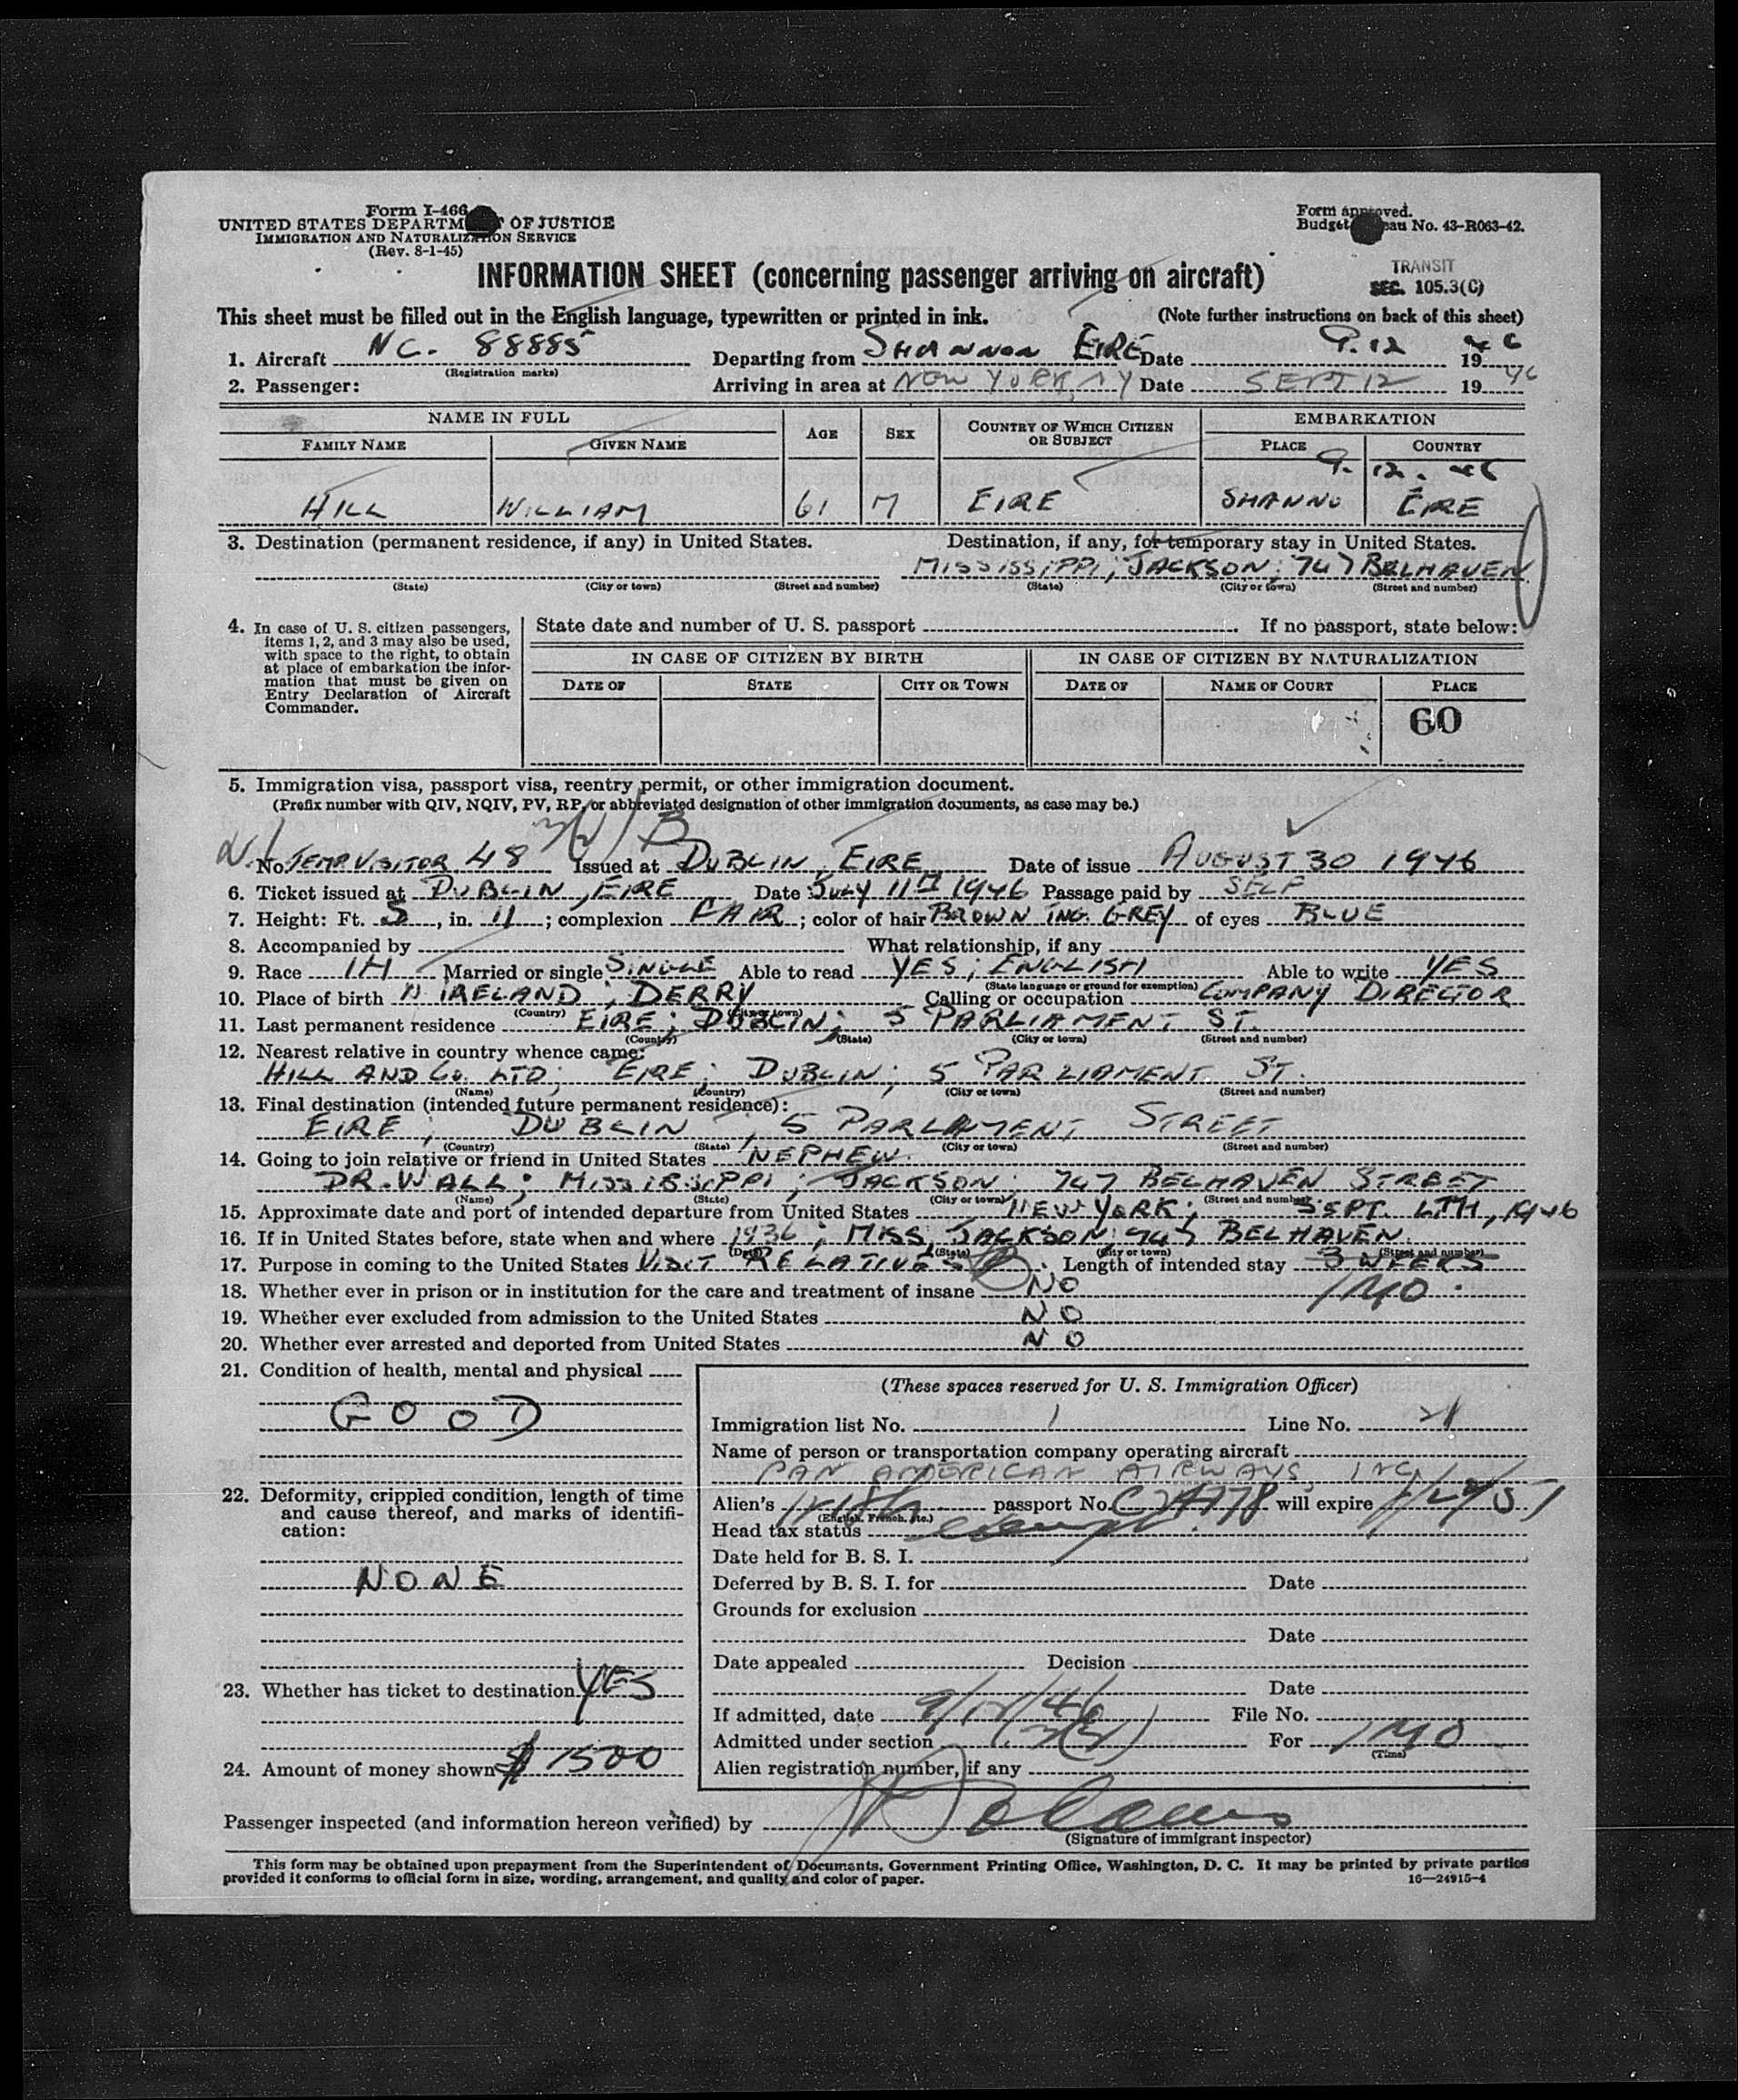 Form I-466
UNITED STATES DEPARTM OF JUSTICE
IMMIGRATION AND NATURALIZATION SERVICE
(Rev. 8-1-45)
Form approved.
Budget eau No. 43-R063-42.
INFORMATION SHEET (concerning passenger arriving on aircraft)
TRANSIT
SEC. 105.3(C)
This sheet must be filled out in the English language, typewritten or printed in ink. (Note further instructions on back of this sheet)
1. Aircraft NC. 88885 Departing from SHANNON EIRE Date 9.12 1946
(Registration marks)
2. Passenger: Arriving in area at NEW YORK, NY Date SEPT 12 1946
NAME IN FULL AGE SEX COUNTRY OF WHICH CITIZEN OR SUBJECT EMBARKATION
FAMILY NAME GIVEN NAME PLACE COUNTRY
9. 12. 46
HILL WILLIAM 61 M EIRE SHANNO EIRE
3. Destination (permanent residence, if any) in United States. Destination, if any, for temporary stay in United States.
MISSISSIPPI; JACKSON; 747 BELHAVEN
(State) (City or town) (Street and number) (State) (City or town) (Street and number)
4. In case of U. S. citizen passengers, items 1, 2, and 3 may also be used, with space to the right, to obtain at place of embarkation the information that must be given on Entry Declaration of Aircraft Commander.
State date and number of U. S. passport If no passport, state below:
IN CASE OF CITIZEN BY BIRTH IN CASE OF CITIZEN BY NATURALIZATION
DATE OF STATE CITY OR TOWN DATE OF NAME OF COURT PLACE
60
5. Immigration visa, passport visa, reentry permit, or other immigration document.
(Prefix number with QIV, NQIV, PV, RP, or abbreviated designation of other immigration documents, as case may be.)
3(2) B
No. TEMP. VISITOR 48 Issued at DUBLIN, EIRE Date of issue AUGUST 30 1946
6. Ticket issued at DUBLIN, EIRE Date JULY 11TH 1946 Passage paid by SELF
7. Height: Ft. 5, in. 11; complexion FAIR; color of hair BROWN ING. GREY of eyes BLUE
8. Accompanied by What relationship, if any
9. Race IH Married or single SINGLE Able to read YES; ENGLISH Able to write YES
(State language or ground for exemption)
10. Place of birth N IRELAND; DERRY Calling or occupation COMPANY DIRECTOR
(Country) (City or town)
11. Last permanent residence EIRE; DUBLIN; 5 PARLIAMENT ST.
(Country) (State) (City or town) (Street and number)
12. Nearest relative in country whence came:
HILL AND Co. LTD; EIRE; DUBLIN; 5 PARLIAMENT ST.
(Name) (Country) (City or town) (Street and number)
13. Final destination (intended future permanent residence):
EIRE; DUBLIN, 5 PARLAMENT STREET
(Country) (State) (City or town) (Street and number)
14. Going to join relative or friend in United States NEPHEW.
DR. WALL; MISSISSIPPI; JACKSON; 747 BELHAVEN STREET
(Name) (State) (City or town) (Street and number)
15. Approximate date and port of intended departure from United States NEW YORK; SEPT. 1946
16. If in United States before, state when and where 1936; MISS; JACKSON; 747 BELHAVEN.
(Date) (State) (City or town) (Street and number)
17. Purpose in coming to the United States VISIT RELATIVES Length of intended stay 3 WEEKS
18. Whether ever in prison or in institution for the care and treatment of insane NO 1 MO.
19. Whether ever excluded from admission to the United States NO
20. Whether ever arrested and deported from United States NO
21. Condition of health, mental and physical
GOOD
22. Deformity, crippled condition, length of time and cause thereof, and marks of identification:
NONE
23. Whether has ticket to destination YES
24. Amount of money shown $1500
(These spaces reserved for U. S. Immigration Officer)
Immigration list No. 1 Line No. 21
Name of person or transportation company operating aircraft
PAN AMERICAN AIRWAYS, INC.
Alien's Irish passport No. will expire
(English, French, etc.)
Head tax status exempt.
Date held for B. S. I.
Deferred by B. S. I. for Date
Grounds for exclusion
Date
Date appealed Decision
Date
If admitted, date 9/12/46 File No.
Admitted under section 3(2) For 1 MO
(Time)
Alien registration number, if any
Passenger inspected (and information hereon verified) by
(Signature of immigrant inspector)
This form may be obtained upon prepayment from the Superintendent of Documents, Government Printing Office, Washington, D. C. It may be printed by private parties
provided it conforms to official form in size, wording, arrangement, and quality and color of paper. 16—24915-4